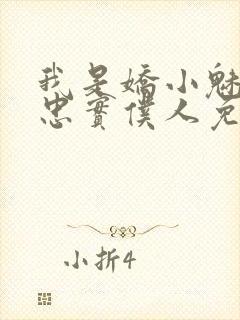 我是嬌小魅
忠實僕人克
小折4